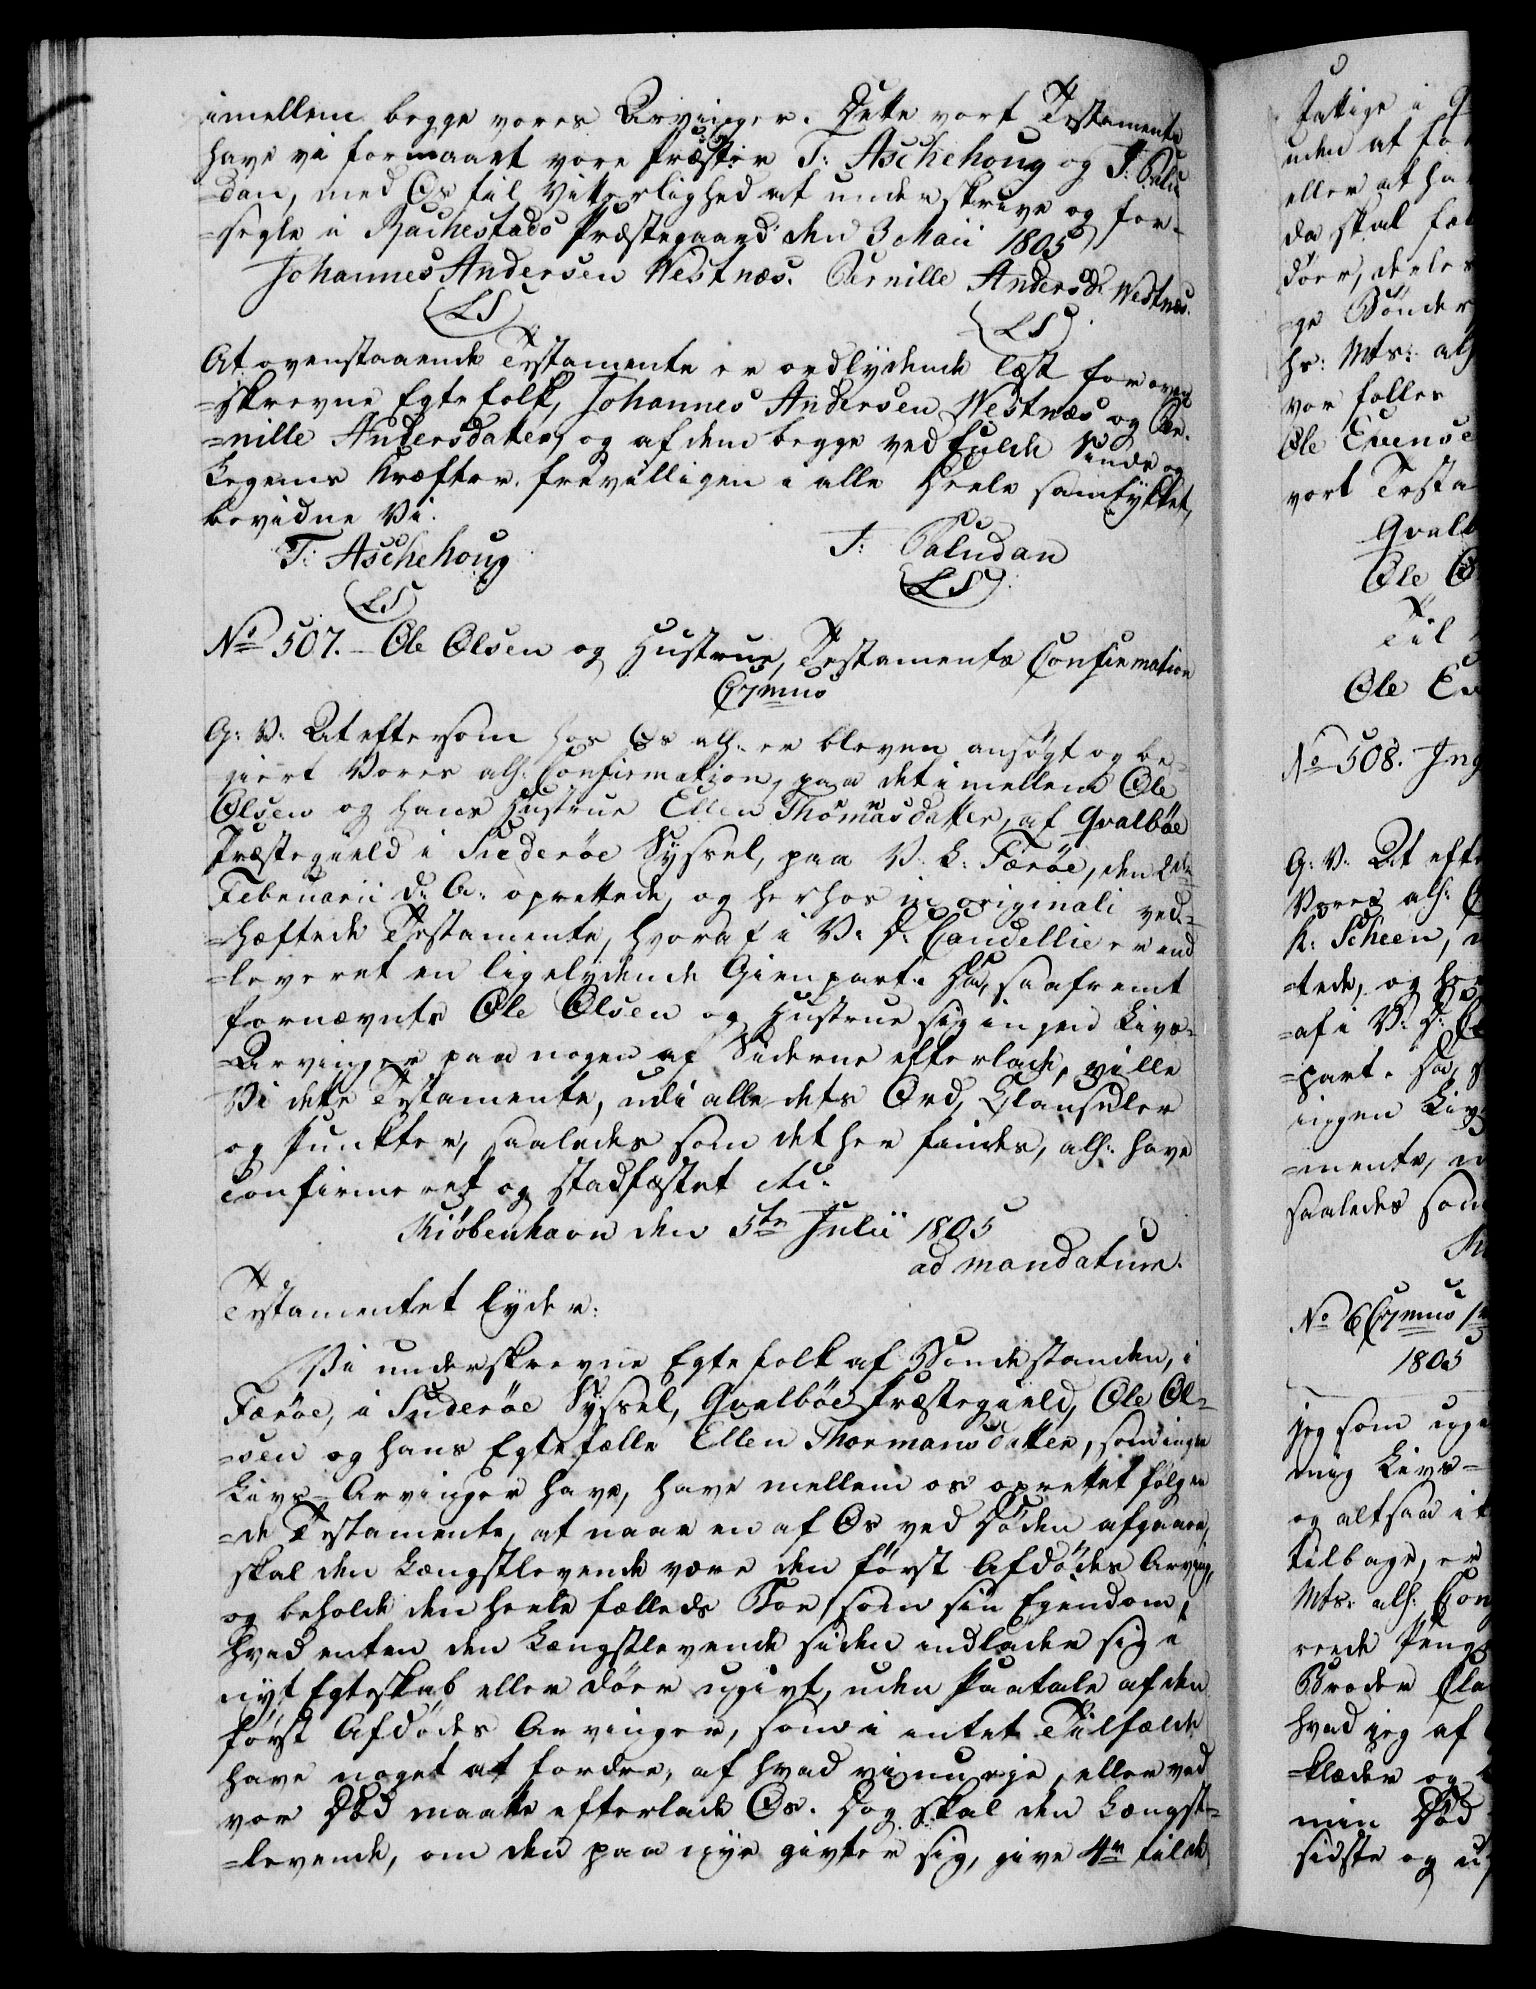 imellem begge vores Arvinger. Dette vort Testamente
have vi formaaet vore Præster T: Aschehoug og J: Palu
=dan, med Os til Vitterlighed at underskrive og for-
=segle i Rachestads Præstegaard den 3 Maii 1805
Johannes Andersen Westnæs. Pernille Andersd. Westnæs.
(LS) (LS)
At ovenstaaende Testamente er ordlydende læst for oven
=skrevne Egtefolk, Johannes Andersen Westnæs og Per-
=nille Andersdatter, og af dem begge ved fulde Sinds og
Legems Kræfter frivilligen i alle Deele samtykket,
bevidne Vi.
T: Aschehoug J: Paludan
(LS) (LS)
No 507. - Ole Olsen og Hustrue, Testaments Confirmation
C7mus
G: V: At eftersom hos Os alh. er bleven ansøgt og be-
giert Vores alh. Confirmation, paa det imellem Ole
Olsen og hans Hustrue Ellen Thormansdatter, af Qvalbøe
Præstegield i Suderøe Syssel, paa V. L. Færøe, den 2den
Februarii d: A: oprettede, og herhos in originali ved-
=hæftede Testamente, hvoraf i V: D: Cancellie er ind
=leveret en ligelydende Gienpart. Da, saafremt
fornævnte Ole Olsen og Hustrue sig ingen Livs-
=Arvinger paa nogen af Siderne efterlade, ville
Vi dette Testamente, udi alle dets Ord, Clausuler
og Puncter, saaledes som det her findes, alh: have
confirmeret og stadfæstet etc.
Kiøbenhavn den 5te Julii 1805
ad mandatum.
Testamentet lyder:
Vi underskrevne Egtefolk af Bondestanden, i
Færøe, i Suderøe Syssel, Qvalbøe Præstegield, Ole Ol-
=sen og hans Egtefælle Ellen Thormansdatter, som ingen
Livs-Arvinger have, have mellem os oprettet følgen
=de Testamente, at naar en af Os ved Døden afgaaer,
skal den Længstlevende være den først Afdødes Arving,
og beholde den heele fælleds Boe, som sin Egendom,
hvad enten den Længstlevende siden indlader sig i
nyt Egteskab eller døer ugivt, uden Paatale af den
først Afdødes Arvinger, som i intet Tilfælde
have noget at fordre, af hvad vi nu eje, eller ved
vor Død maatte efterlade Os. Dog skal den Længst-
=levende, om den paa nye givter sig, give 4 rd til de
Fattige i Q
uden at fo
eller at ha
da skal fal
døer, deele
=ge Bønder
hs: Mts: alh
vor fælles
Ole Evense
vort Testa
Qvalb
Ole O
Til
Ole Ev
No 508. Ing
G: V: At efte
Vores alh: C
K: Scheen,
=tede, og he
=af i V: D: C
=part. Da, s
ingen Liv
=mente, u
saaledes som
Ki
No 6 C7mus
1805
jeg som uge
mig Livs-
og altsaa i
tilbage, er
Mts: alh: Con
rede Penge
Broder Cla
hvad jeg af
=klæder og
min Død
sidste og u